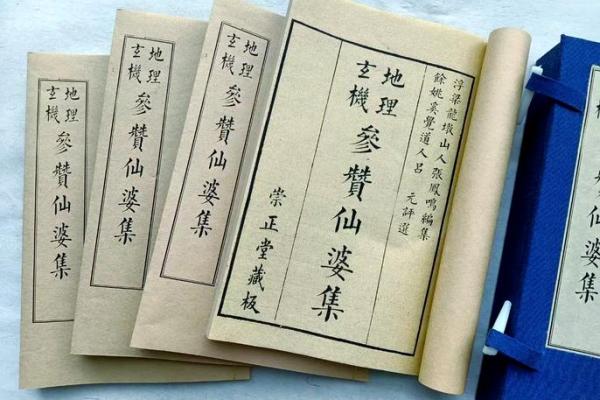 地理
玄機
參贊仙婆集
地理
玄機
參贊仙婆集
地理
玄機
參贊仙婆集
浮梁龍墩山人張鳳鳴編集
餘姚奚覺道人呂 元評選
地理
玄機
參贊仙婆集
崇正堂藏板
機
仙婆集